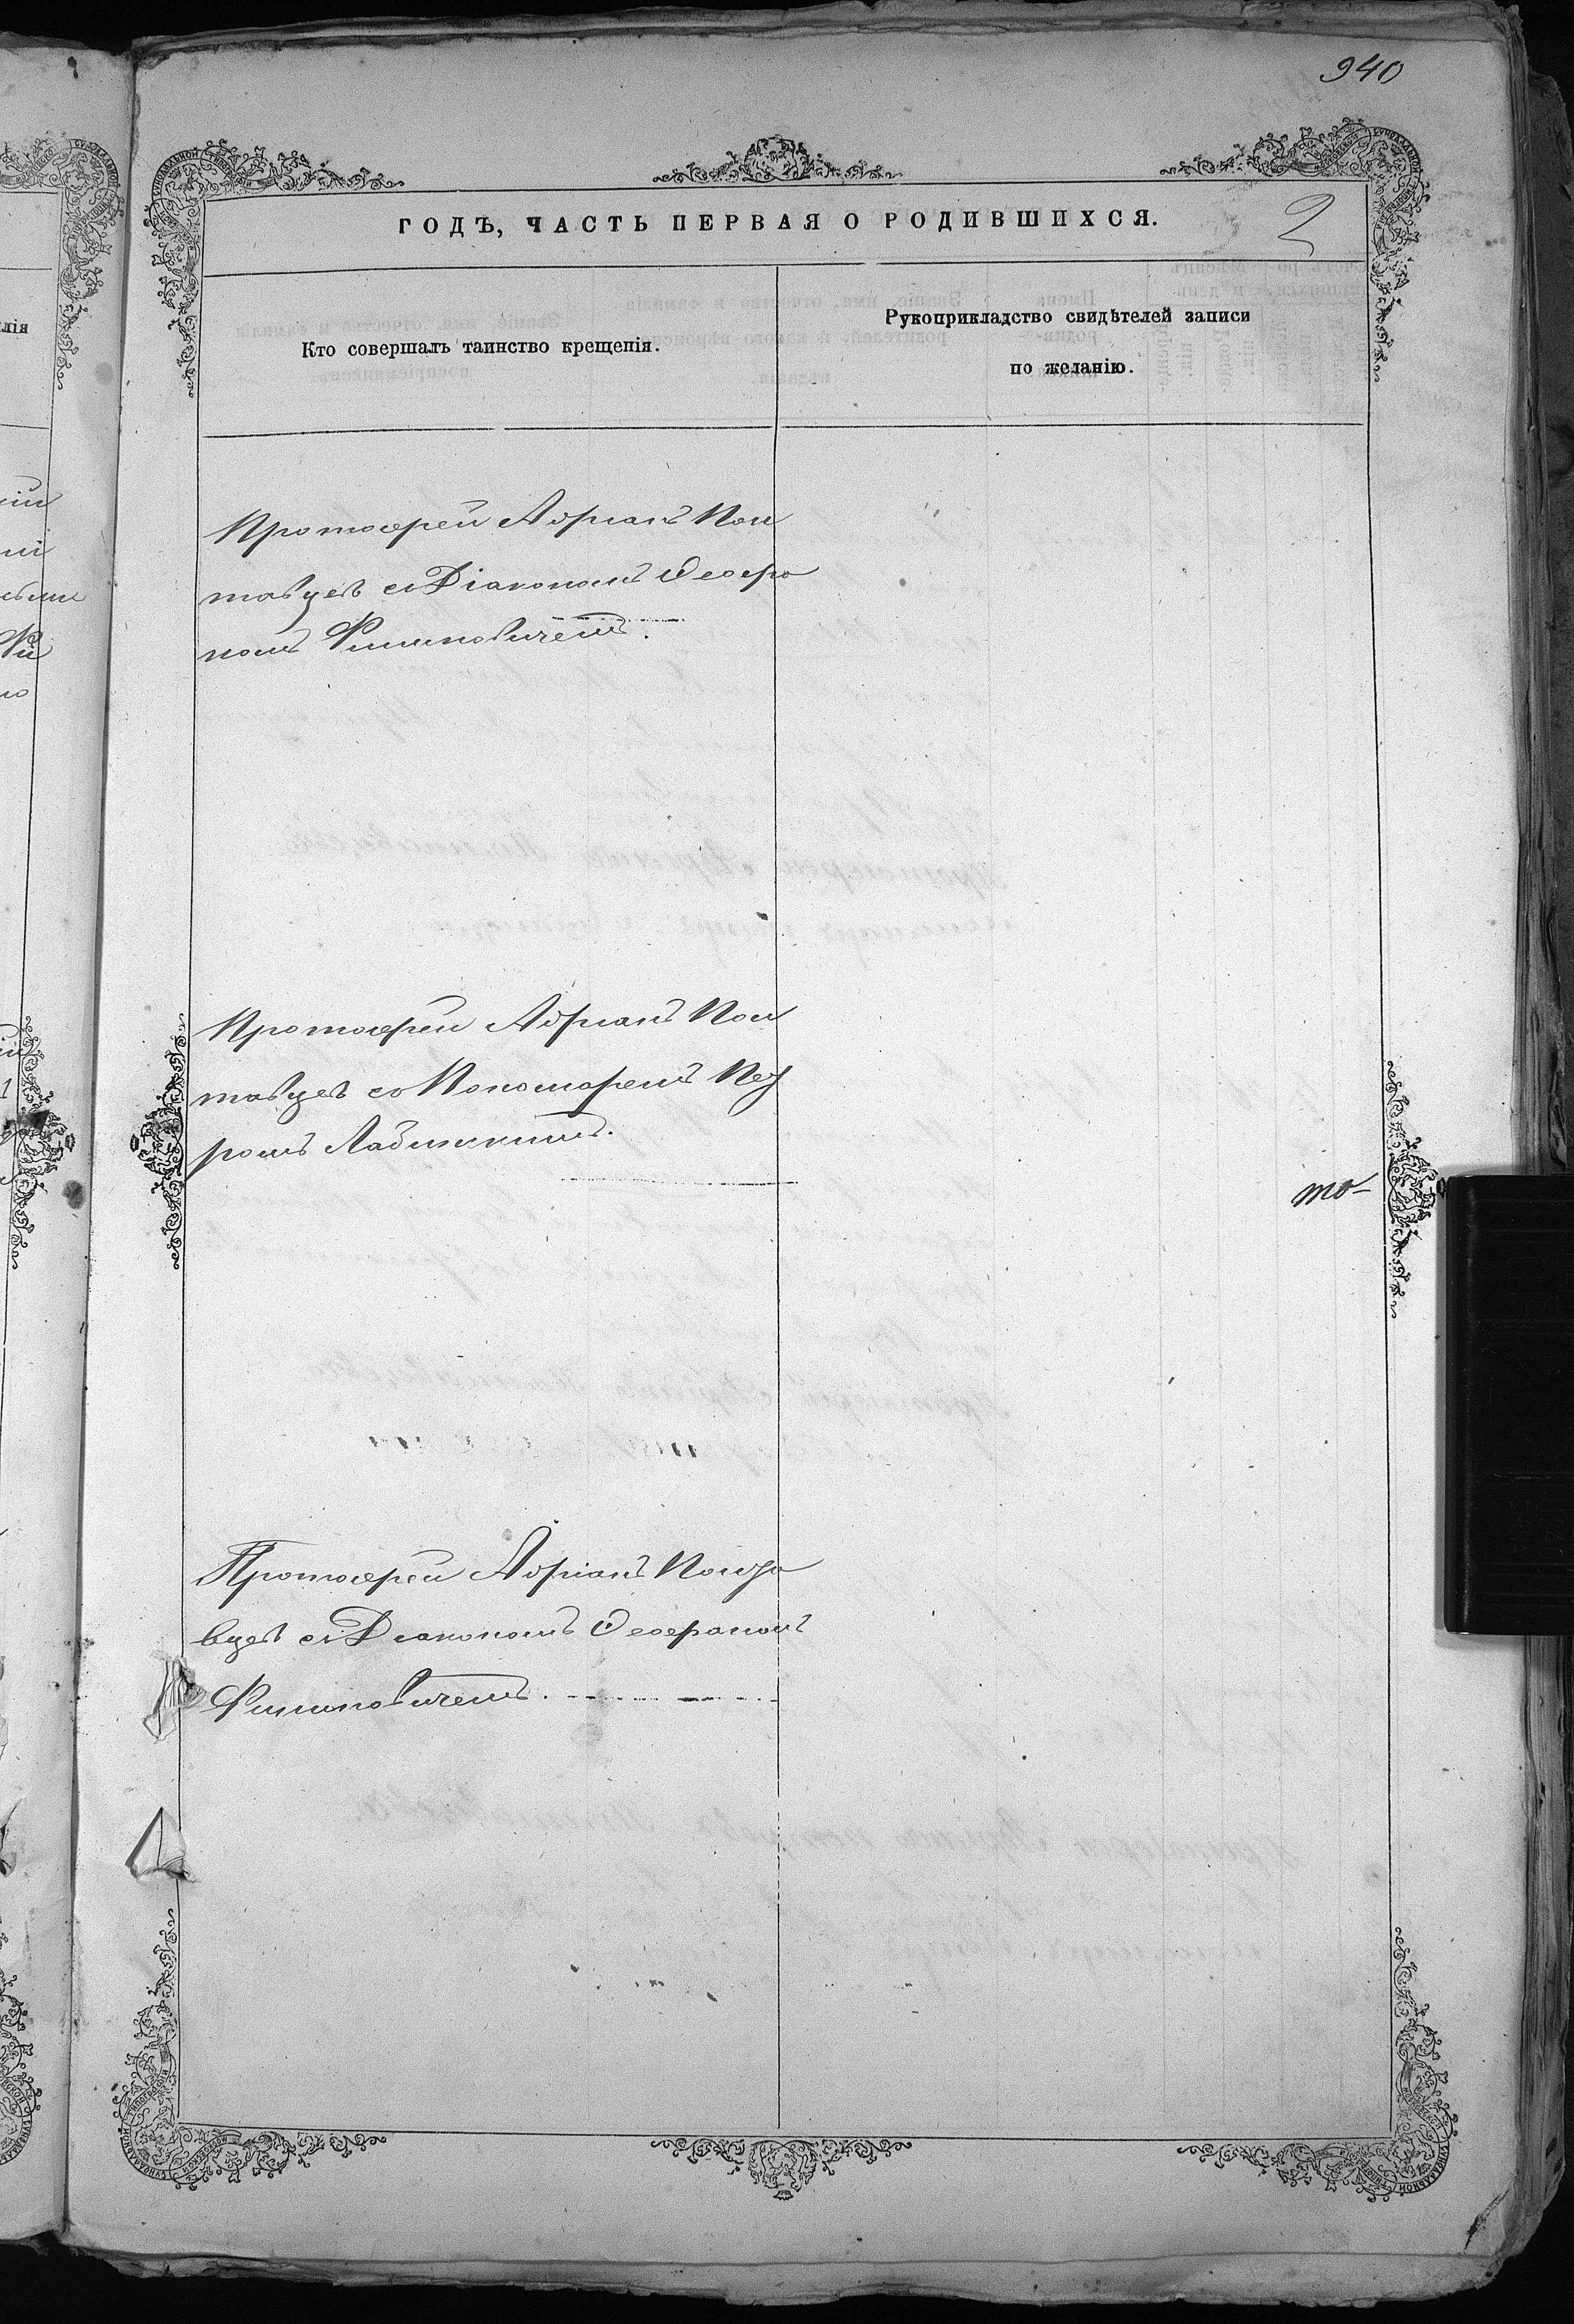 940
ГОДЪ, ЧАСТЬ ПЕРВАЯ О РОДИВШИХСЯ.
2
Кто совершалъ таинство крещенія.
Рукоприкладство свидѣтелей записи
по желанію.
Протоіерей Адріанъ Пол
тавцевъ съ Діакономъ Ѳеофа
номъ Филиповичемъ.
Протоіерей Адріанъ Пол
тавцевъ съ Пономаремъ Пет
ромъ
то-
Протоіерей Адріанъ Полта
вцевъ съ Діакономъ Ѳеофаномъ
Филиповичемъ.